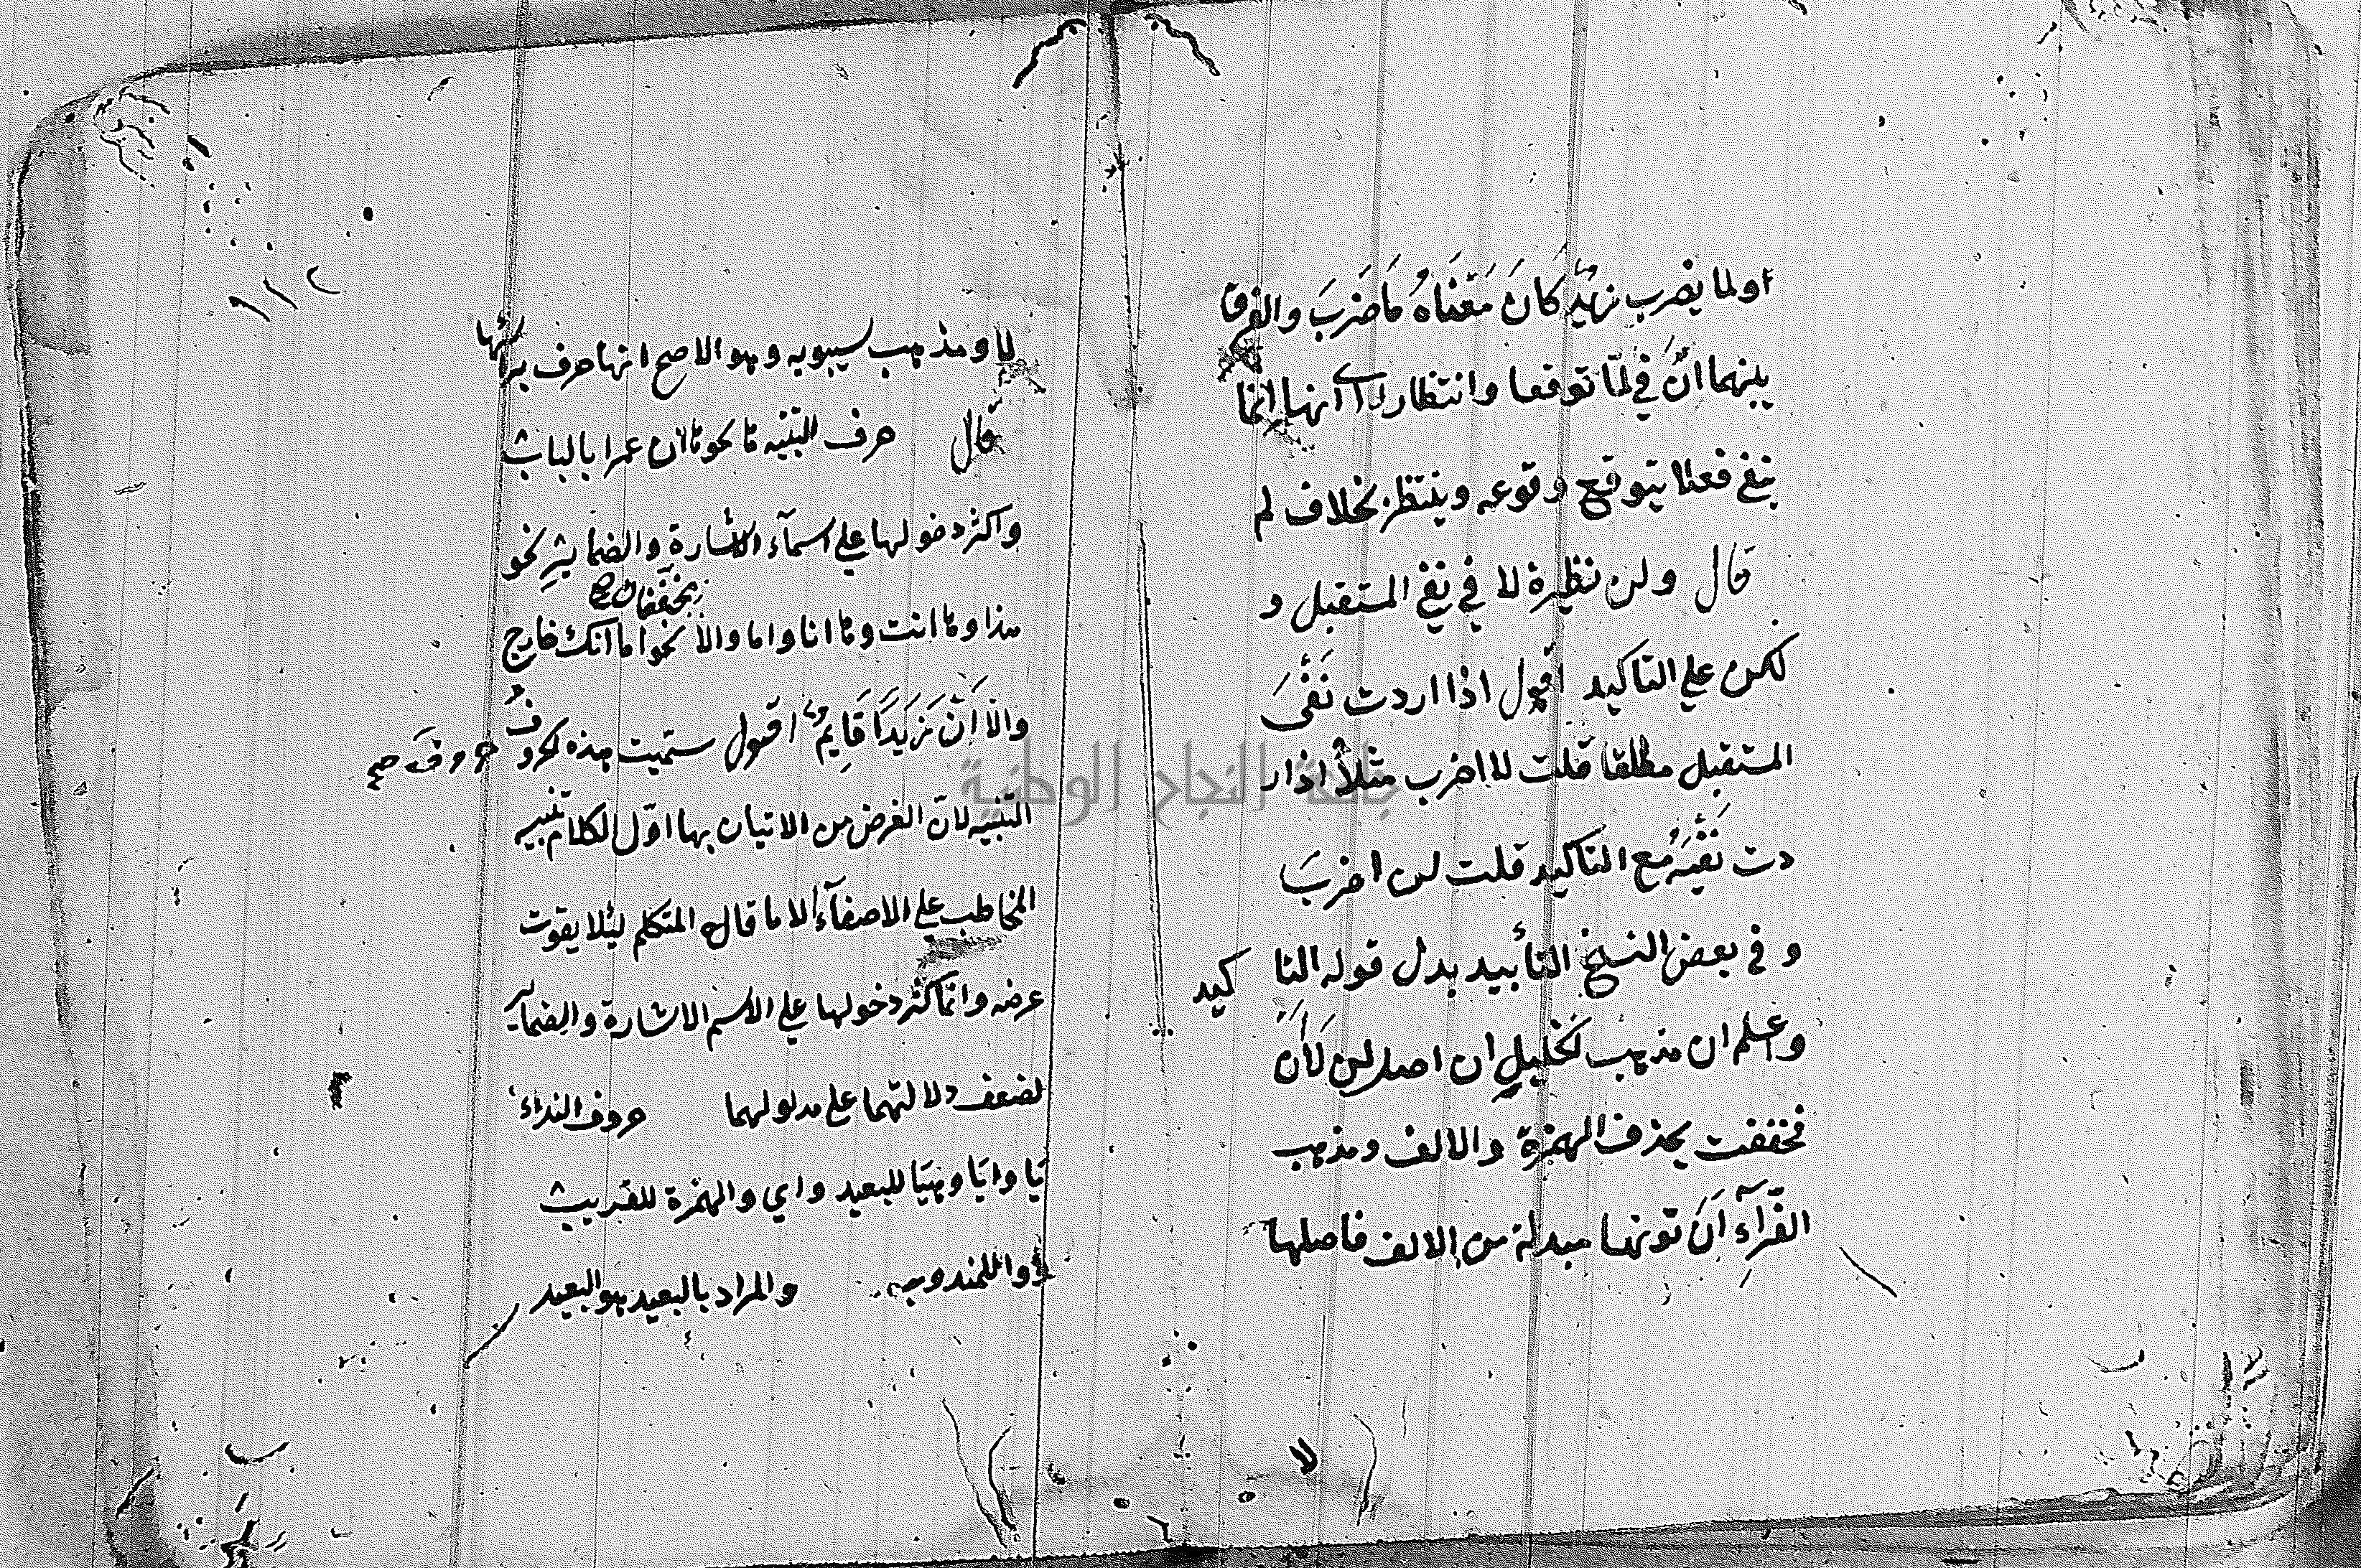 أولما يضرب زيد كَانَ مَعْنَاهُ مَا ضَرَبَ والفرق
بينهما انّ في لمّا توقعا وانتظارا اى انها انما
ينفي فعلا يتوقع وقوعه وينتظر بخلاف لم
قال ولن نظيرة لا في نفي المستقبل و
لكن علي التاكيد اقول اذا اردت نَفْىَ
المستقبل مطلقا قلت لا اضرب مثلاً اذا ار
دت نَفْيَهُ مع التاكيد قلت لن اضربَ
و في بعض النسخ التأبيد بدل قوله التا كيد
واعلم ان مذهب الخليل ان اصل لن لَا أَنْ
فخففت بحذف الهمزة والالف ومذهب
الفرّآء انّ نونها مبدلة من الالف فاصلها
لا
١١٢
لا ومذهب سيبويه وهو الاصح انها حرف برائها
قال حرف التنبيه ها نحو ها ان عمرا بالباب
واكثر دخولها علي اسمآء الاشارة والضمائر نحو
مخففان صح
هذا وها انت وها انا واما والا نحو اما انك خارج
والا اَنّ زَيْدًا قَايِمٌ اقول سمّيت هذه الحروفُ حروفَ صح
التنبيه لانّ الغرض من الاتيان بها اوّل الكلام تنبيه
المخاطب علي الاصغآء الا ما قال المتكلم ليئلا يفوت
غرضه وانّما كثر دخولها علي الاسم الاشارة والضماير
لضعف دلالتهما على مدلولهما حروف النداء
يَا وايَا وهيَا للبعيد واي والهمزة للقريب
ووا للمندوب والمراد بالبعيد هو البعيد
جامعة النجاح الوطنية